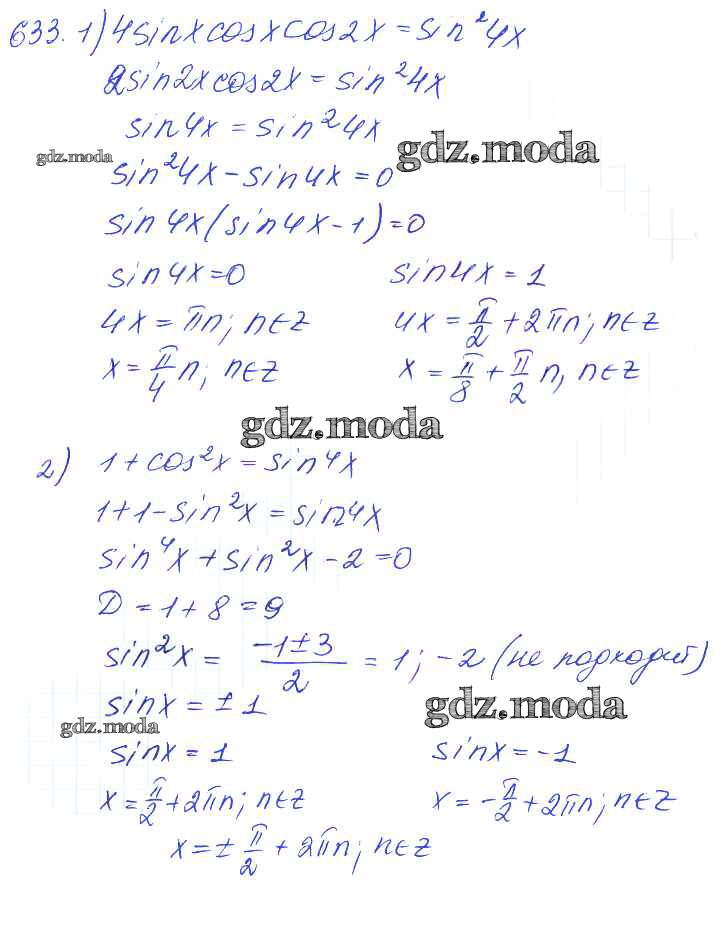 633. 1) 4sinxcosxcos2x = sin²4x
2sin2xcos2x = sin²4x
sin4x = sin²4x
gdz.moda gdz.moda
sin²4x - sin4x = 0
sin4x(sin4x - 1) = 0
sin4x = 0 sin4x = 1
4x = πn; n∈Z 4x = π/2 + 2πn; n∈Z
x = π/4 n; n∈Z x = π/8 + π/2 n, n∈Z
gdz.moda
2) 1 + cos²x = sin⁴x
1 + 1 - sin²x = sin4x
sin⁴x + sin²x - 2 = 0
D = 1 + 8 = 9
sin²x = (-1 ± 3)/2 = 1; -2 (не подходит)
sinx = ± 1
gdz.moda gdz.moda
sinx = 1 sinx = -1
x = π/2 + 2πn; n∈Z x = -π/2 + 2πn; n∈Z
x = ± π/2 + 2πn; n∈Z